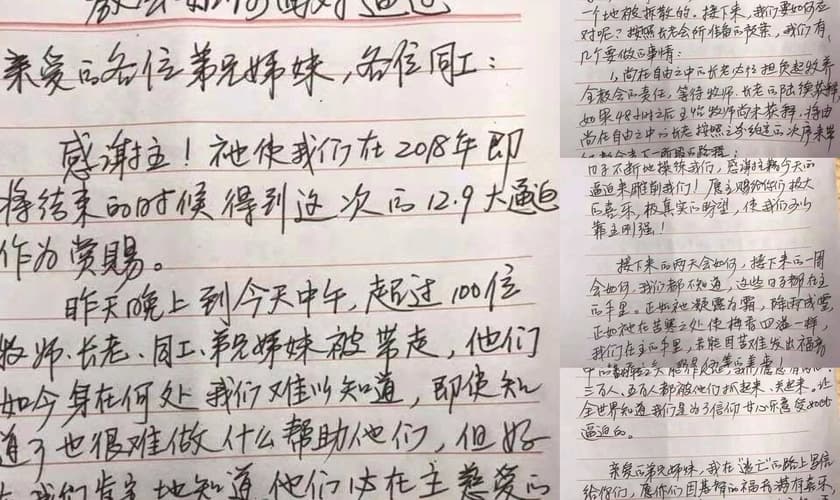 教会如何面对逼迫
亲爱的各位弟兄姊妹,各位同工:
感谢主!祂使我们在2018年即
将结束的时候得到这次的12.9大逼迫
作为赏赐。
昨天晚上到今天中午,超过100位
牧师、长老、同工、弟兄姊妹被带走,他们
如今身在何处我们难以知道,即使知
道了也很难做什么帮助他们,但好
我们肯定地知道他们必在主慈爱的
一个地被拆散的。接下来,我们要如何应
对呢?按照长老会所准备的预案,我们有
几个要做的事情:
1、尚在自由之中的长老必须担负起牧养
全教会的责任,等待牧师、长老的陆续获释
如果48小时之后主任牧师尚未获释,将由
尚在自由之中的长老按照之前约定的次序来
日子不断地操练我们,感谢主藉今天的
逼迫来雕刻我们!愿主赐给你们极大
的喜乐,极真实的盼望,使我们可以
靠主刚强!
接下来的两天会如何,接下来的一周
会如何,我们都不知道,这些日子都在主
的手里。正如祂凝露为霜,降雨成雪,
正如祂在苦寒之处使梅香四溢一样,
我们在主的手里,若能因苦难发出福音
三万人、五万人都被他们抓起来、关起来。让
全世界知道我们是为了信仰甘心乐意受
逼迫的。
亲爱的弟兄姊妹,我在"逃亡"的路上写信
给你们,愿你们因基督的福音满有喜乐